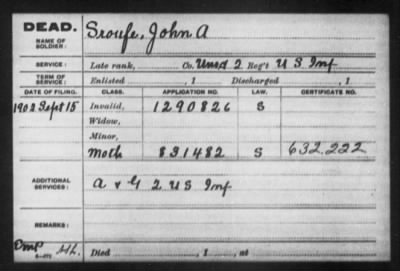 DEAD.
NAME OF SOLDIER: Sroufe, John A
SERVICE: Late rank, Co. Unas'd 2 Reg't U S Inf
TERM OF SERVICE: Enlisted , 1 Discharged , 1
DATE OF FILING. CLASS. APPLICATION NO. LAW. CERTIFICATE NO.
1902 Sept 15 Invalid, 1290826 S
Widow,
Minor,
Moth 831482 S 632.222
ADDITIONAL SERVICES: A & G 2 US Inf
REMARKS:
Died , 1 , at